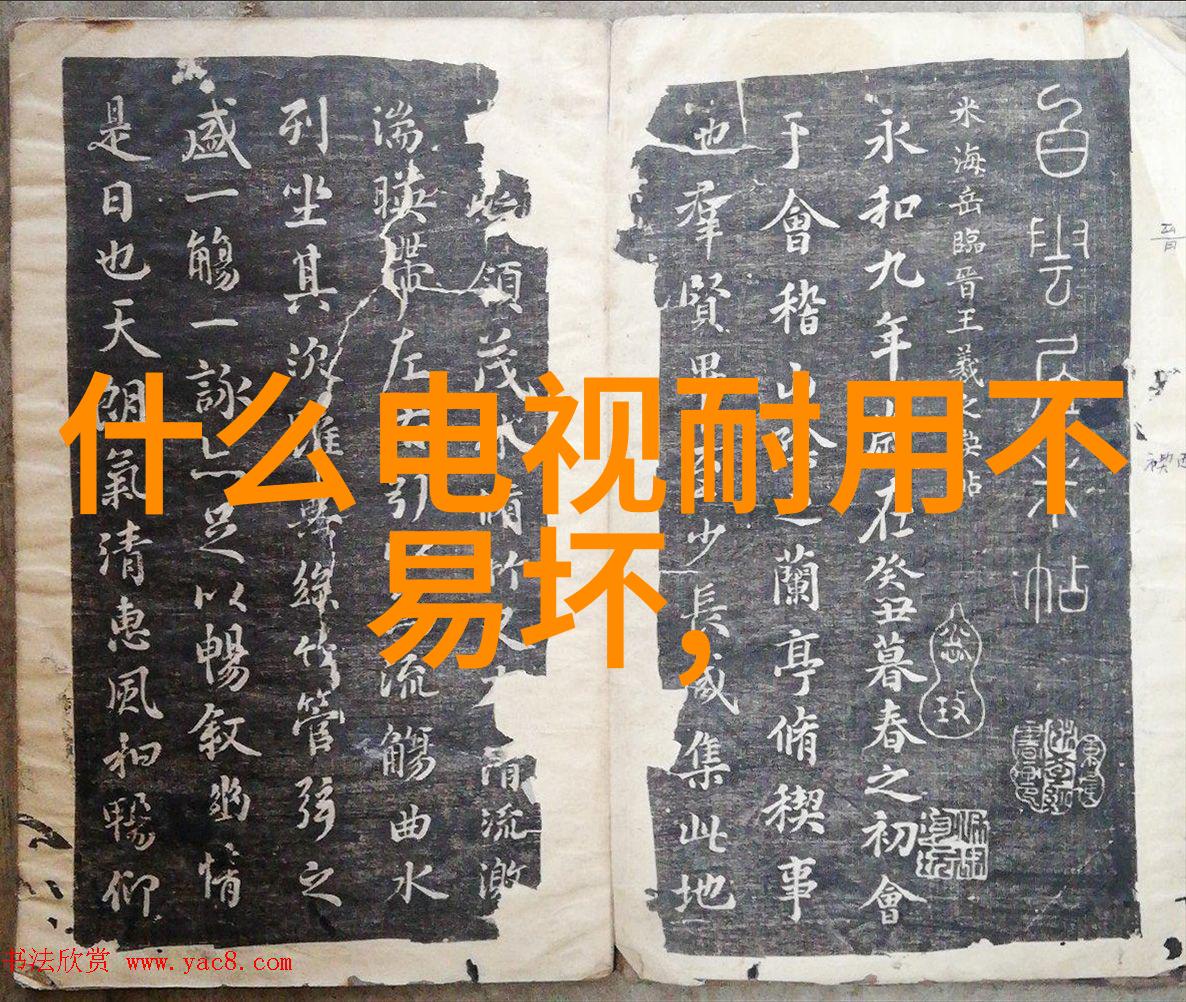 什么电视耐用不
易坏,
白雲居米帖
米海岳臨晉王羲之帖
永和九年歲在癸丑暮春之初會
于會稽山陰之蘭亭脩稧事
也羣賢畢至少長咸集此地
領茂林脩竹又有清流激
湍暎帶左右引以流觴曲水
列坐其次雖無絲竹管弦之
盛一觴一詠亦足以暢敘幽情
是日也天朗氣清惠風和暢仰
书法欣赏 www.yac8.com